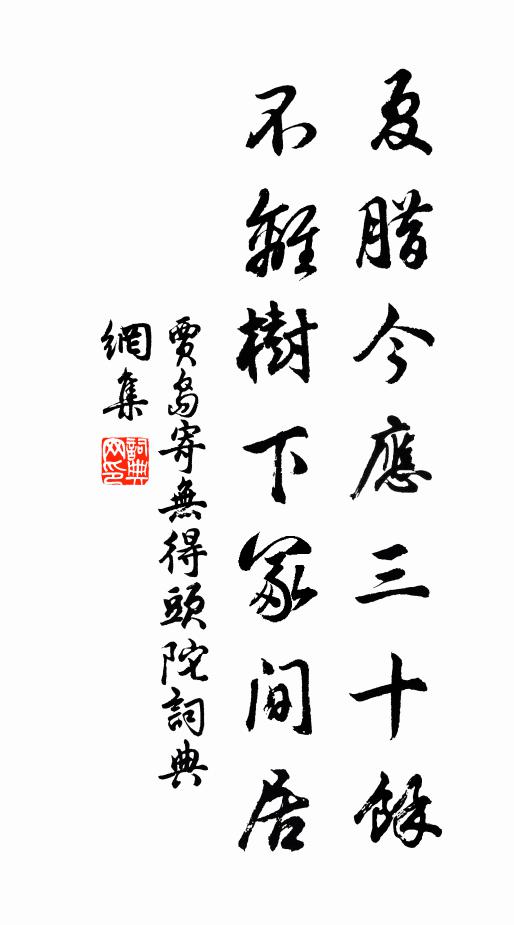 夏腊今應三十餘
不離樹下冢間居
賈島寄無得頭陀詞典
網集
詞典
网印